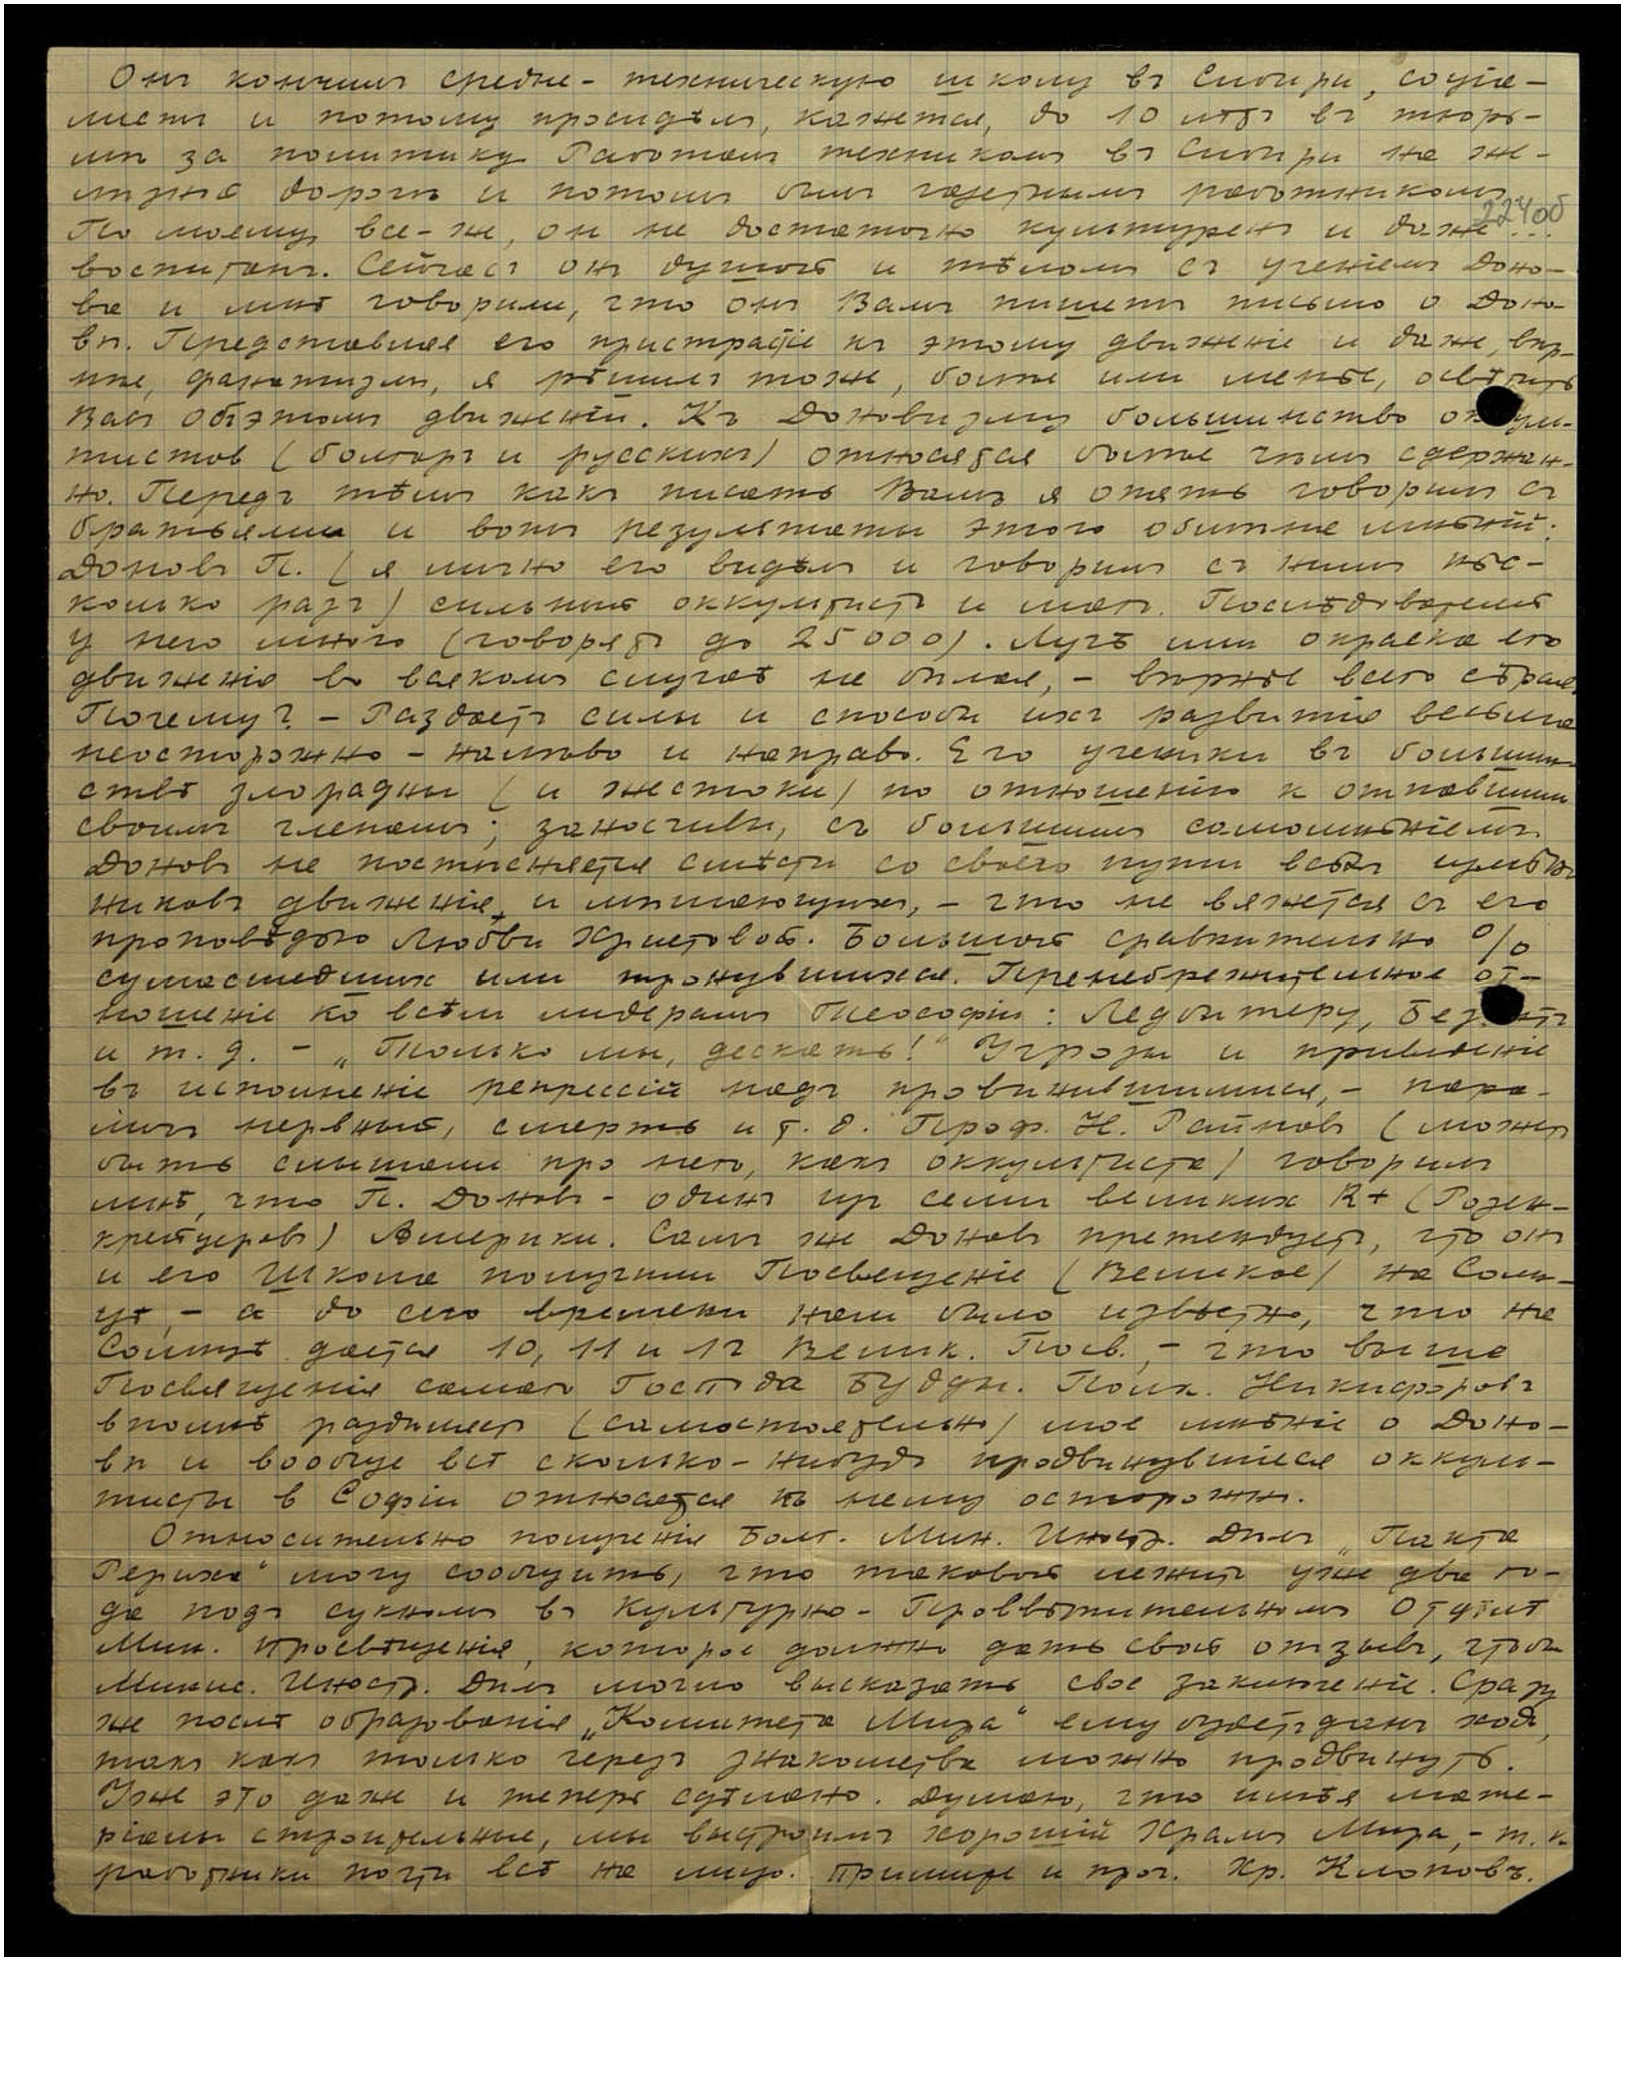 Онъ кончилъ средне-техническую школу въ Сибири, соціа-
листъ и потому просидѣлъ, кажется, до 10 лѣтъ въ тюрь-
мѣ за политику. Работалъ техникомъ въ Сибири на же-
лѣзной дорогѣ и потомъ былъ газетнымъ работникомъ.
224об
По моему все-же, он не достаточно культуренъ и даже...
воспитанъ. Сейчасъ онъ душой и тѣломъ съ ученіемъ Доно-
ва и мнѣ говорили, что онъ Вамъ пишетъ письмо о Доно-
вѣ. Представляя его пристрастіе къ этому движенію и даже, вѣр-
нѣе, фанатизмъ, я рѣшилъ тоже, болѣе или менѣе, освѣтить
Вамъ объ этомъ движеніи. Къ Доновизму большинство оккуль-
тистов (болгаръ и русскихъ) относятся болѣе чѣмъ сдержан-
но. Передъ тѣмъ какъ писать Вамъ я опять говорилъ съ
братьями и вотъ результаты этого обмѣна мнѣній:
Доновъ П. (я лично его видѣлъ и говорилъ съ нимъ нѣс-
колько разъ) сильный оккультистъ и магъ. Послѣдователей
у него много (говорятъ до 25000). Лучъ или окраска его
движенія во всякомъ случаѣ не бѣлая, - вѣрнѣе всего сѣрая.
Почему? - Раздаетъ силы и способы ихъ развитія весьма
неосторожно - налѣво и направо. Его ученики въ большин-
ствѣ злорадны (и жестоки) по отношенію к отпавшимъ
своимъ членамъ; заносчивы, съ большимъ самомнѣніемъ.
Доновъ не постѣсняется смѣсти со своего пути всѣхъ измѣн-
никовъ движенія и мѣшающихъ, - что не вяжется съ его
проповѣдью Любви Христовой. Большой сравнительно %
сумасшедших или тронувшихся. Пренебрежительное от-
ношеніе ко всѣмъ лидерамъ Теософіи: Ледбитеру, Безантъ
и т. д. - „Только мы, дескать!" Угрозы и приведеніе
въ исполненіе репрессій надъ провинившимися, - пара-
личъ нервный, смерть и т. д. Проф. Н. Райновъ (можетъ
быть слышали про него, какъ оккультиста) говорилъ
мнѣ, что П. Доновъ - одинъ изъ семи великихъ R+ (Розен-
крейцеровъ) Америки. Самъ же Доновъ претендуетъ, что он
и его Школа получили Посвященіе (Великое) на Солн-
цѣ, - а до сего времени нам было извѣстно, что на
Солнцѣ дается 10, 11 и 12 Велик. Посв., - что выше
Посвященія самого Господа Будды. Полк. Никифоровъ
вполнѣ раздѣляетъ (самостоятельно) мое мнѣніе о Доно-
вѣ и вообще всѣ сколько-нибудь продвинувшіеся оккуль-
тисты в Софіи относятся къ нему осторожно.
Относительно полученія Болг. Мин. Иностр. Дѣлъ „Пакта
Рериха" могу сообщить, что таковой лежитъ уже два го-
да подъ сукномъ въ Культурно-Просвѣтительномъ Отдѣлѣ
Мин. Просвѣщенія, которое должно дать свой отзывъ, чтобы
Минис. Иностр. Дѣлъ могло высказать свое заключеніе. Сразу
же послѣ образованія „Комитета Мира" ему будетъ данъ ходъ,
такъ какъ только черезъ знакомства можно продвинуть.
Уже это даже и теперь сдѣлано. Думаю, что имѣя мате-
ріалы строительные, мы выстроимъ хорошій Храмъ Мира, - т. к.
работники почти всѣ на лицо. Примите и проч. Хр. Клоповъ.